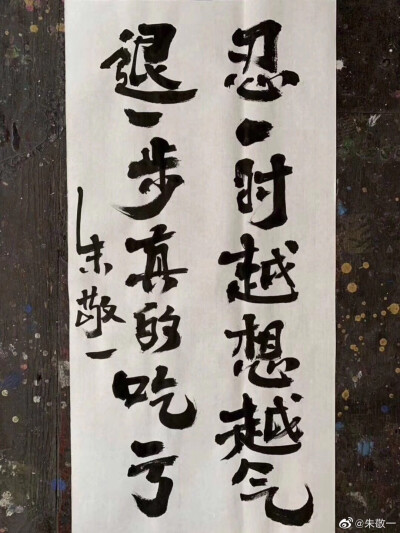 忍一时越想越气
退一步真的吃亏
朱敬一
@朱敬一